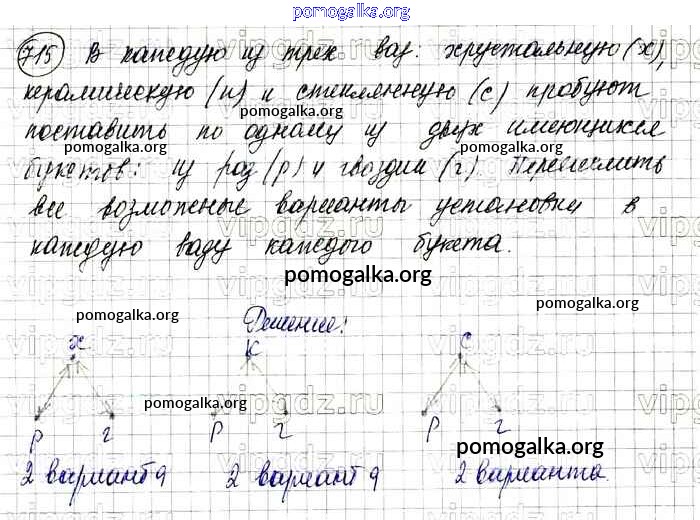 pomogalka.org
715 В каждую из трех ваз: хрустальную (х),
керамическую (к) и стеклянную (с) пробуют
pomogalka.org
поставить по одному из двух имеющихся
pomogalka.org
букетов: из роз (р) и гвоздик (г). Перечислить
все возможные варианты установки в
каждую вазу каждого букета.
pomogalka.org
pomogalka.org Решение: pomogalka.org
х К с
pomogalka.org
р г р г р г
pomogalka.org
2 варианта 2 варианта 2 варианта.
vipgdz.ru